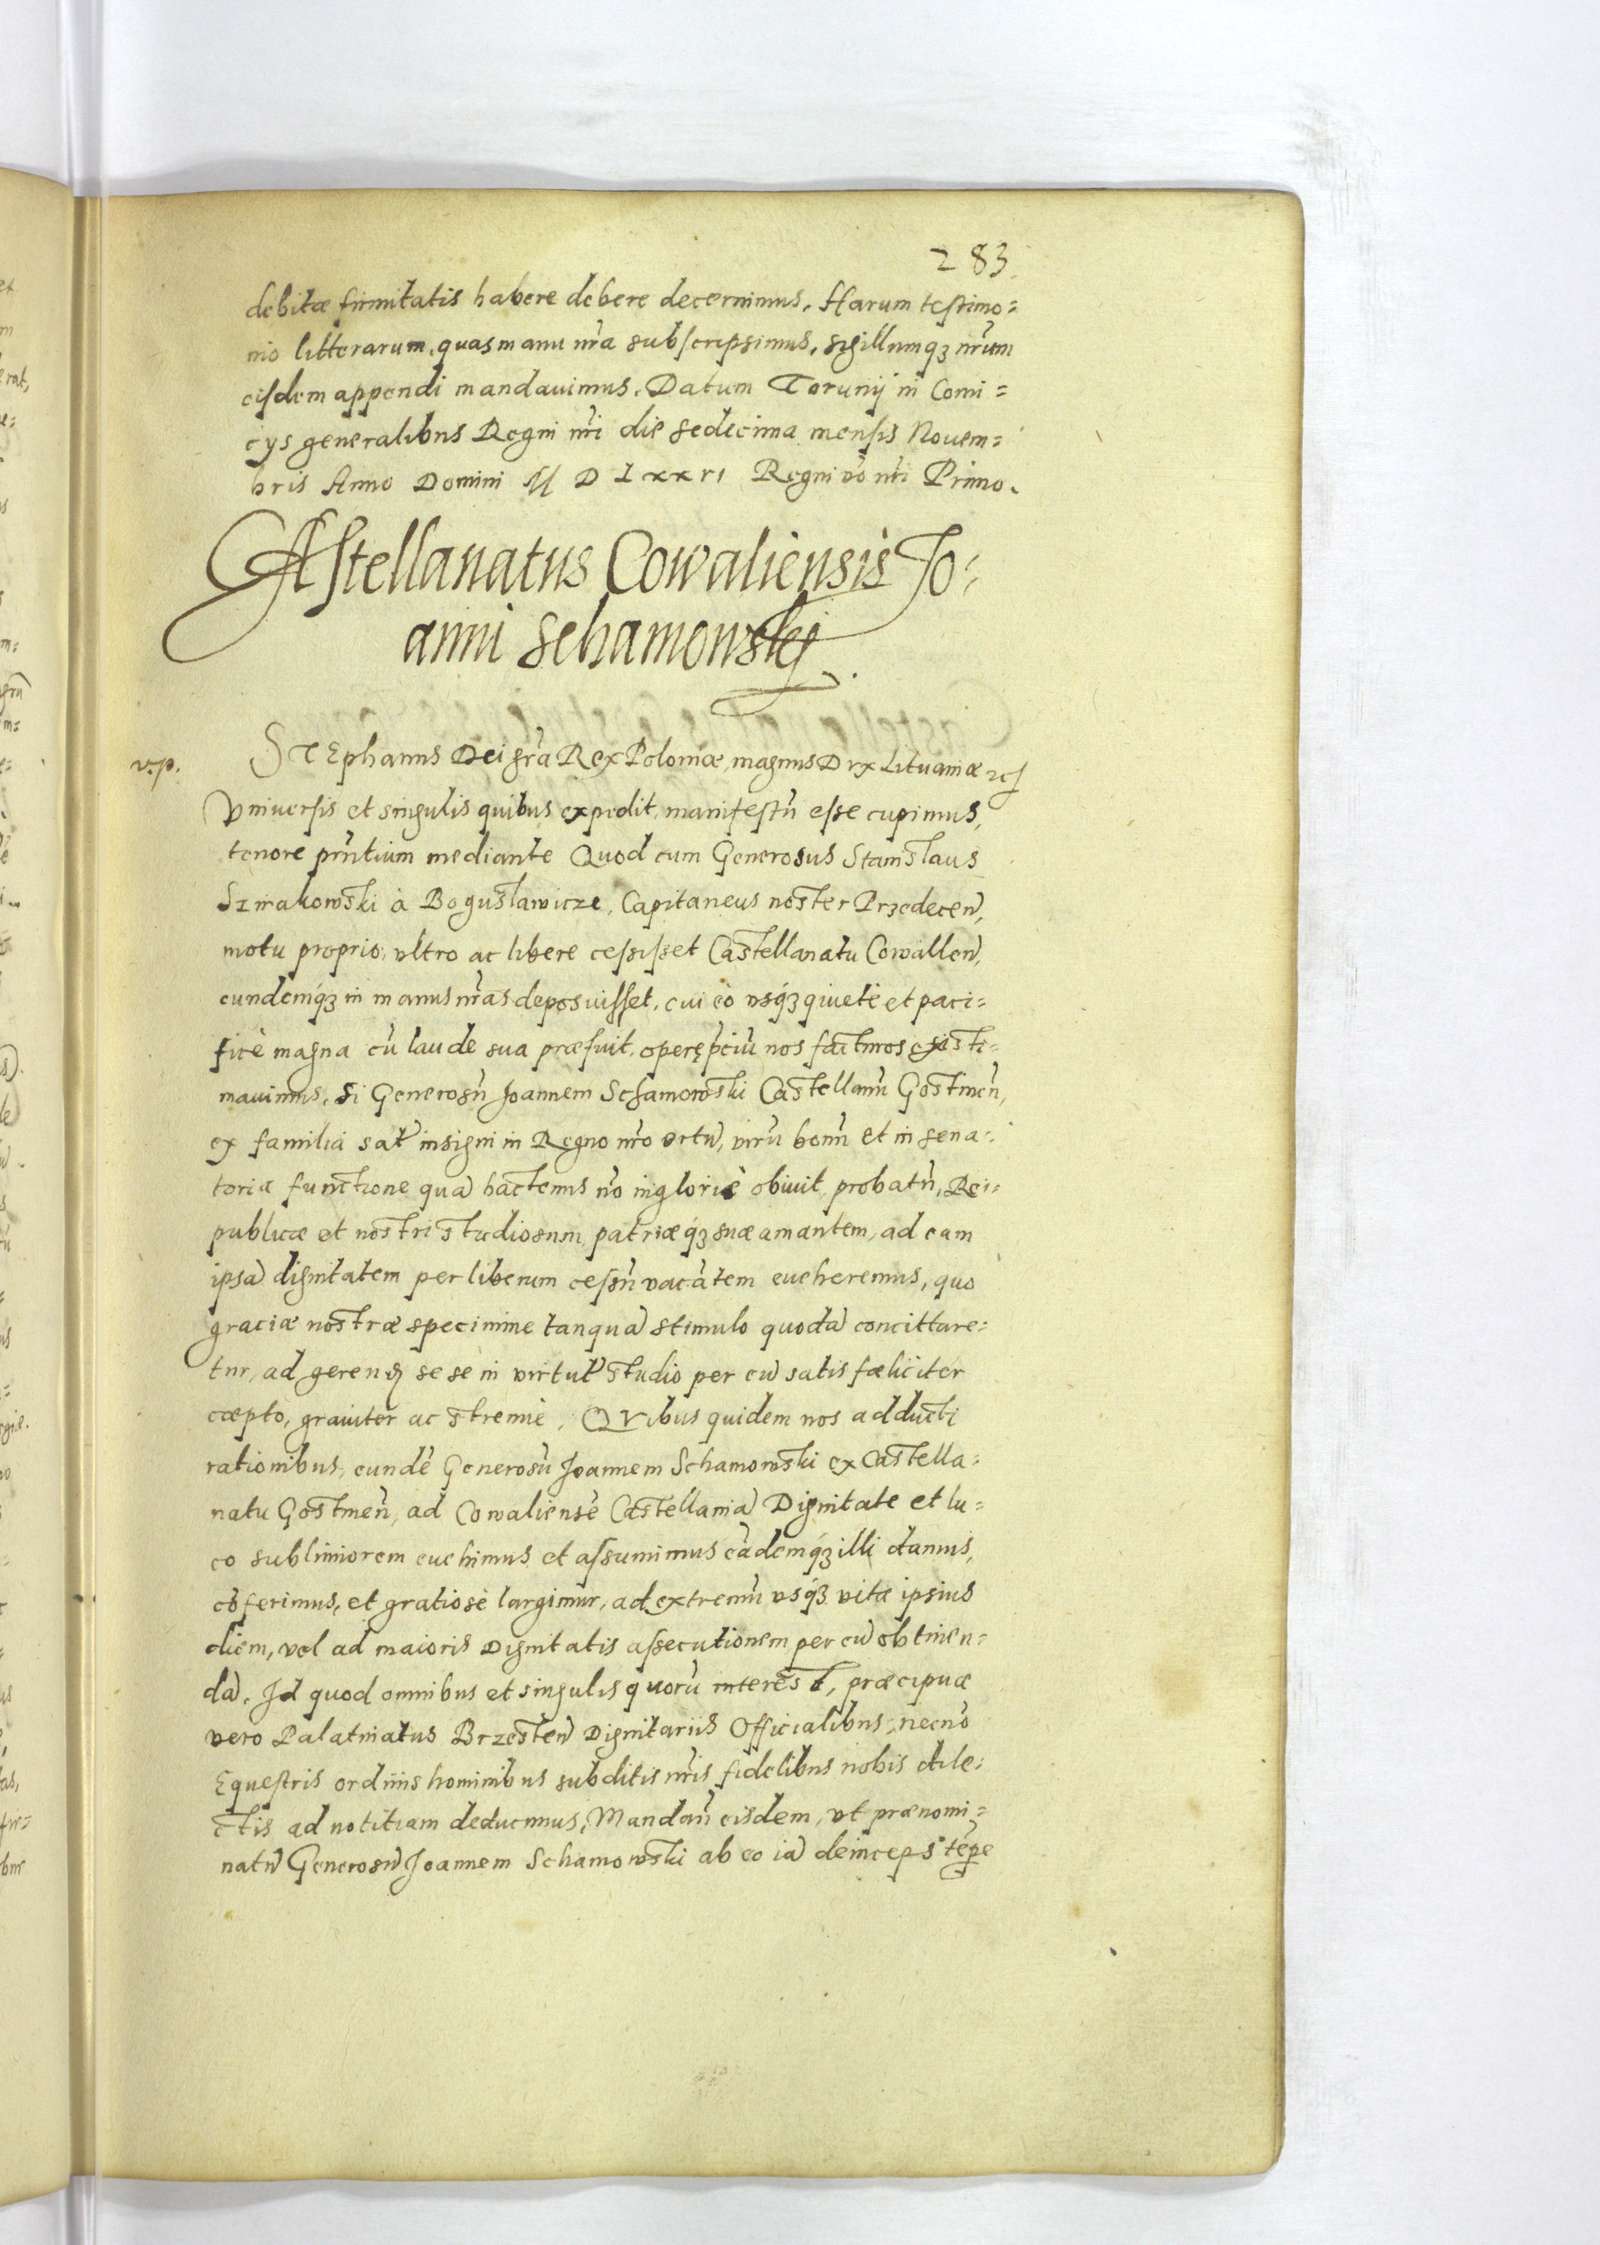 283
debitæ firmitatis habere debere decernimus. Harum testimo=
nio litterarum, quas manu nr̃a subscripsimus, sigillumq₃ nr̃um
eisdem appendi mandauimus. Datum Torunij in Comi=
cys generalibus Regni nr̃i die sedecima mensis Nouem=
bris Anno Domini M D Lxxvi Regni vo nr̃i Primo.
CAstellanatus Cowaliensis Jo=
anni Schamowskj.
v.p.
STEphanus Dei gr̃a Rex Poloniæ, magnus Dux Lituaniæ
Vniuersis et singulis quibus expedit, manifestũ esse cupimus,
tenore pñtium mediante Quod cum Generosus Stanislaus
à Boguslawicze, Capitaneus noster Przedecen̄,
motu proprio, vltro ac libere cessisset Castellanatu Cowallen̄,
eundemq́₃ in manus nr̃as deposuisset, cui eò vsq́₃ quietè et paci=
ficè magna cũ laude sua præfuit, operę p̃ciũ nos facturos existi=
mauimus, si Generosũ Joannem Schamowski Castellanũ Gostinen̄,
ex familia sat insigni in Regno nr̃o ortũ, virũ bonũ et in sena=
toria functione qua hactenus nõ inglorie obiuit, probatũ, Rei=
publicæ et nostri studiosum, patriæq́₃ suæ amantem, ad eam
ipsã dignitatem per liberum cessũ vacãtem eueheremus, quo
graciæ nostræ specimine tanquã stimulo quodã concittare=
tur, ad gerend₃ se se in virtut̃ studio per eũ satis fæliciter
cæpto, grauiter ac strenue. QVibus quidem nos adducti
rationibus, eundẽ Generosũ Joannem Schamowski ex Castella=
natu Gostinen̄, ad Cowaliensẽ Castellaniã Dignitate et lu=
co sublimiorem euehimus et assumimus eãdemq́₃ illi damus,
cõferimus, et gratiosè largimur, ad extremũ vsq́₃ vitæ ipsius
diem, vel ad maioris Dignitatis assecutionem per eũ obtinen=
dã. Id quod omnibus et singulis quorũ interest, præcipuæ
vero Palatinatus Brzesten̄ Dignitariis Officialibus, necnõ
Equestris ordinis hominibus subditis nr̃is fidelibus nobis dile=
ctis ad notitiam deducimus, Mandañ eisdem, vt prænomi=
natũ Generosũ Joannem Schamowski ab eo iã deinceps tẽpe